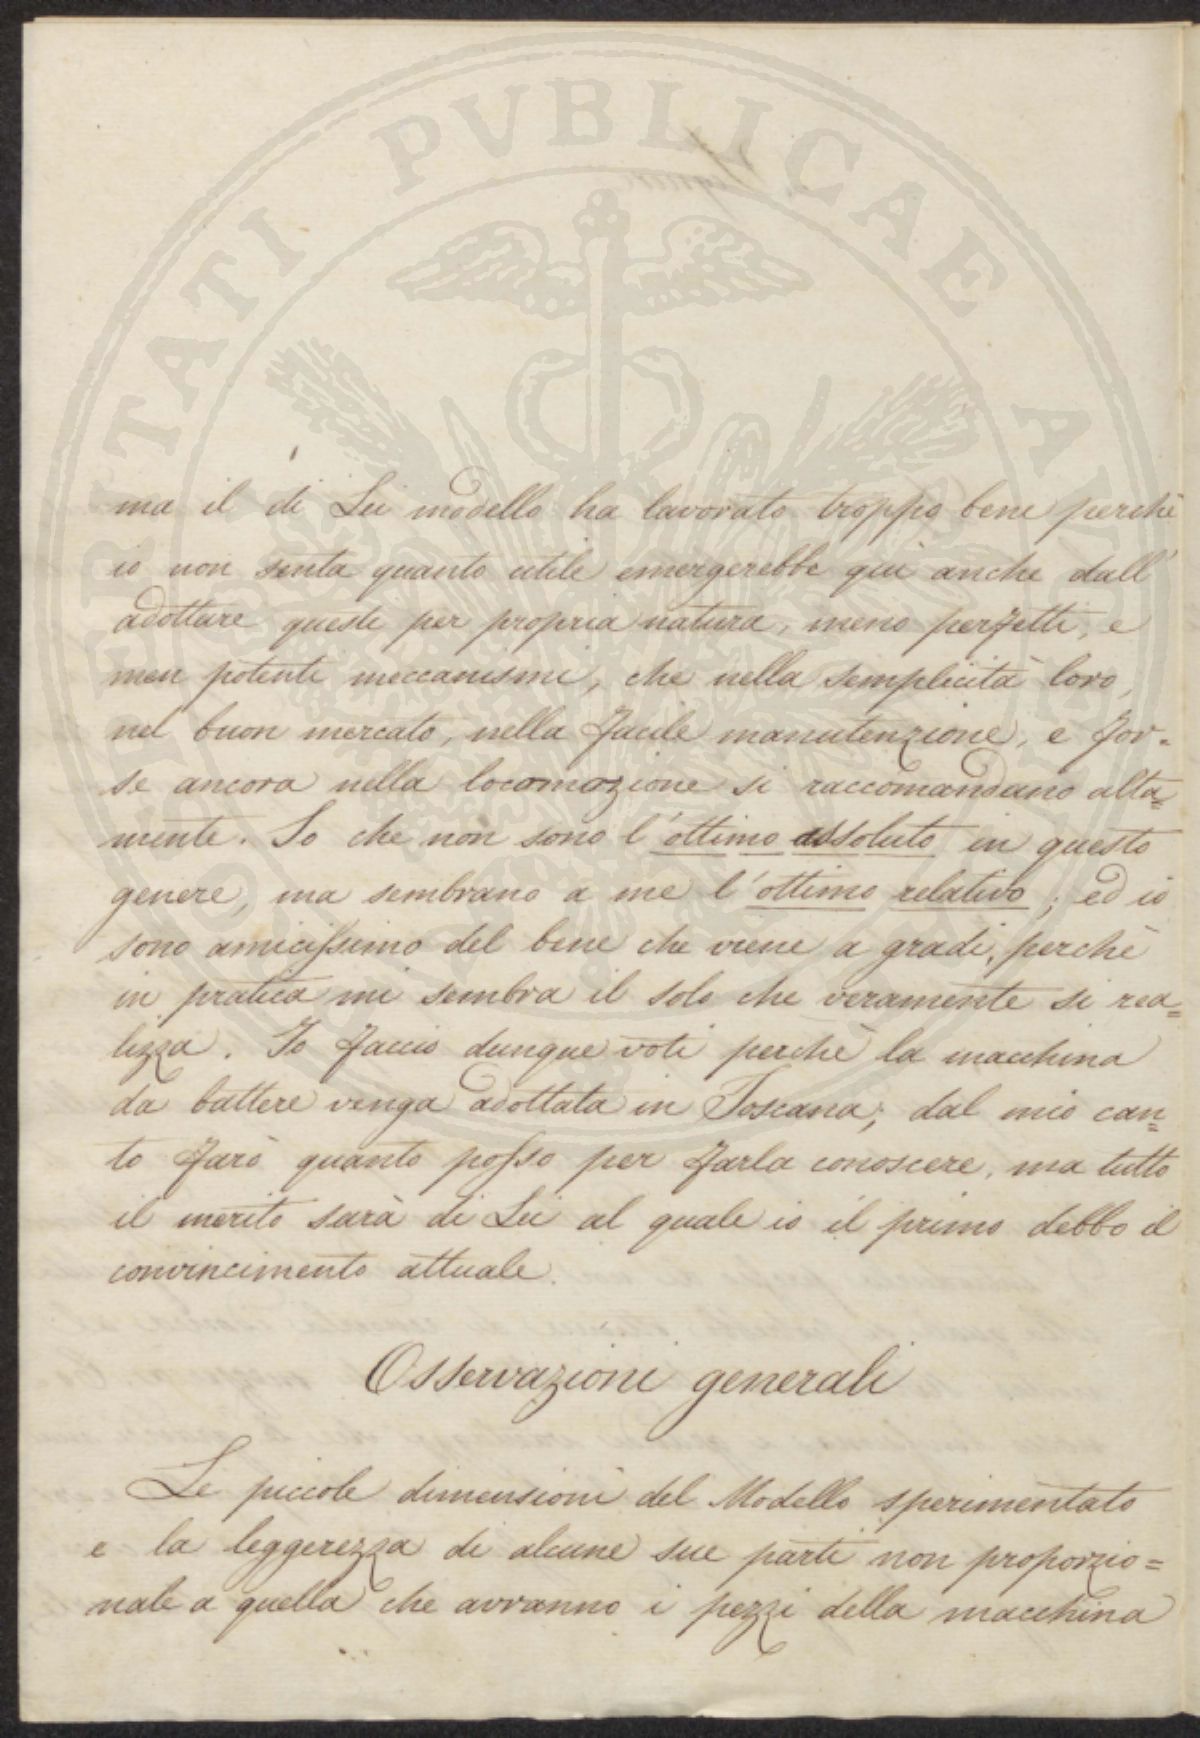 ma il di Lei modello ha lavorato troppo bene perchè
io non senta quanto utile emergerebbe quì anche dall'
adottare questi per propria natura, meno perfetti, e
men potenti meccanismi, che nella semplicità loro,
nel buon mercato, nella facile manutenzione, e for-
se ancora nella locomozione si raccomandano alta=
mente. So che non sono l'ottimo assoluto in questo
genere, ma sembrano a me l'ottimo relativo; ed io
sono amicissimo del bene che viene a gradi, perchè
in pratica mi sembra il solo che veramente si rea=
lizza. Io faccio dunque voti perchè la macchina
da battere venga adottata in Toscana; dal mio can=
to farò quanto posso per farla conoscere, ma tutto
il merito sarà di Lei al quale io il primo debbo il
convincimento attuale.
Osservazioni generali
Le piccole dimensioni del Modello sperimentato
e la leggerezza di alcune sue parti non proporzio=
nale a quella che avranno i pezzi della macchina